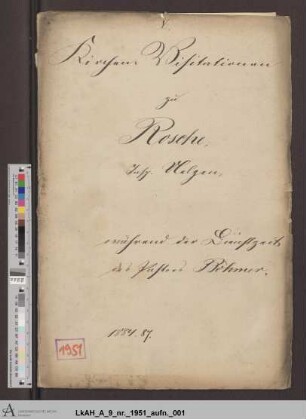 Kirchen-Visitationen
zu
Rosche.
Insp. Uelzen.
während der Dienstzeit
des Pastors Böhmer.
1884. 87.
1951
LkAH_A_9_nr._1951_aufn._001